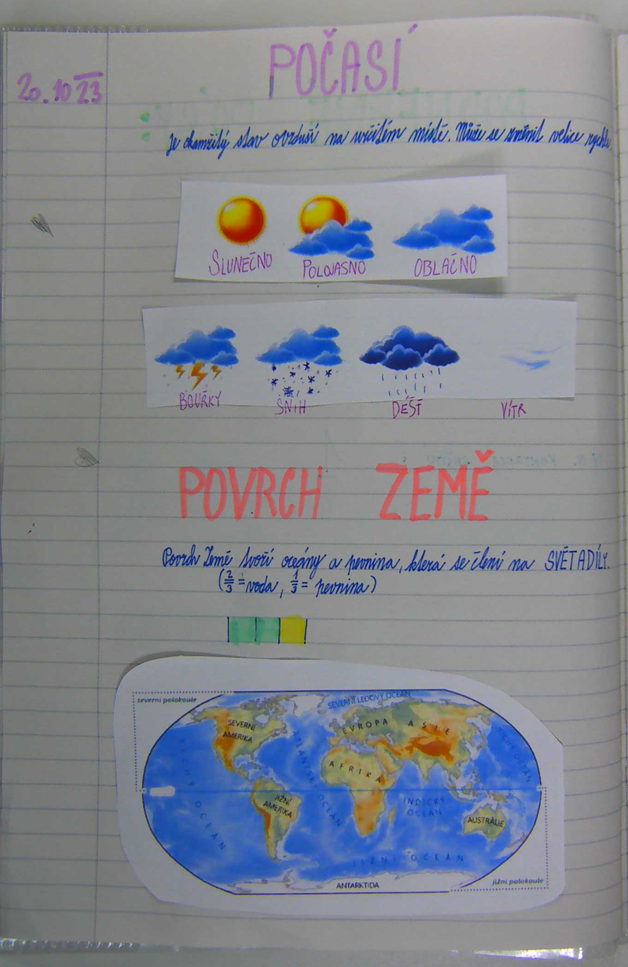 POČASÍ
20.10 23
Je okamžitý stav ovzduší na určitém místě. Může se změnit velice rychle
SLUNEČNO POLOJASNO OBLAČNO
BOUŘKY SNÍH DÉŠŤ VÍTR
POVRCH ZEMĚ
Povrch Země tvoří oceány a pevnina, která se člení na SVĚTADÍLY.
(2/3 = voda, 1/3 = pevnina)
severní polokoule
SEVERNÍ LEDOVÝ OCEÁN
SEVERNÍ AMERIKA
EVROPA
ASIE
AFRIKA
TICHÝ OCEÁN
ATLANTSKÝ OCEÁN
JIŽNÍ AMERIKA
INDICKÝ OCEÁN
AUSTRÁLIE
JIŽNÍ OCEÁN
ANTARKTIDA
jižní polokoule